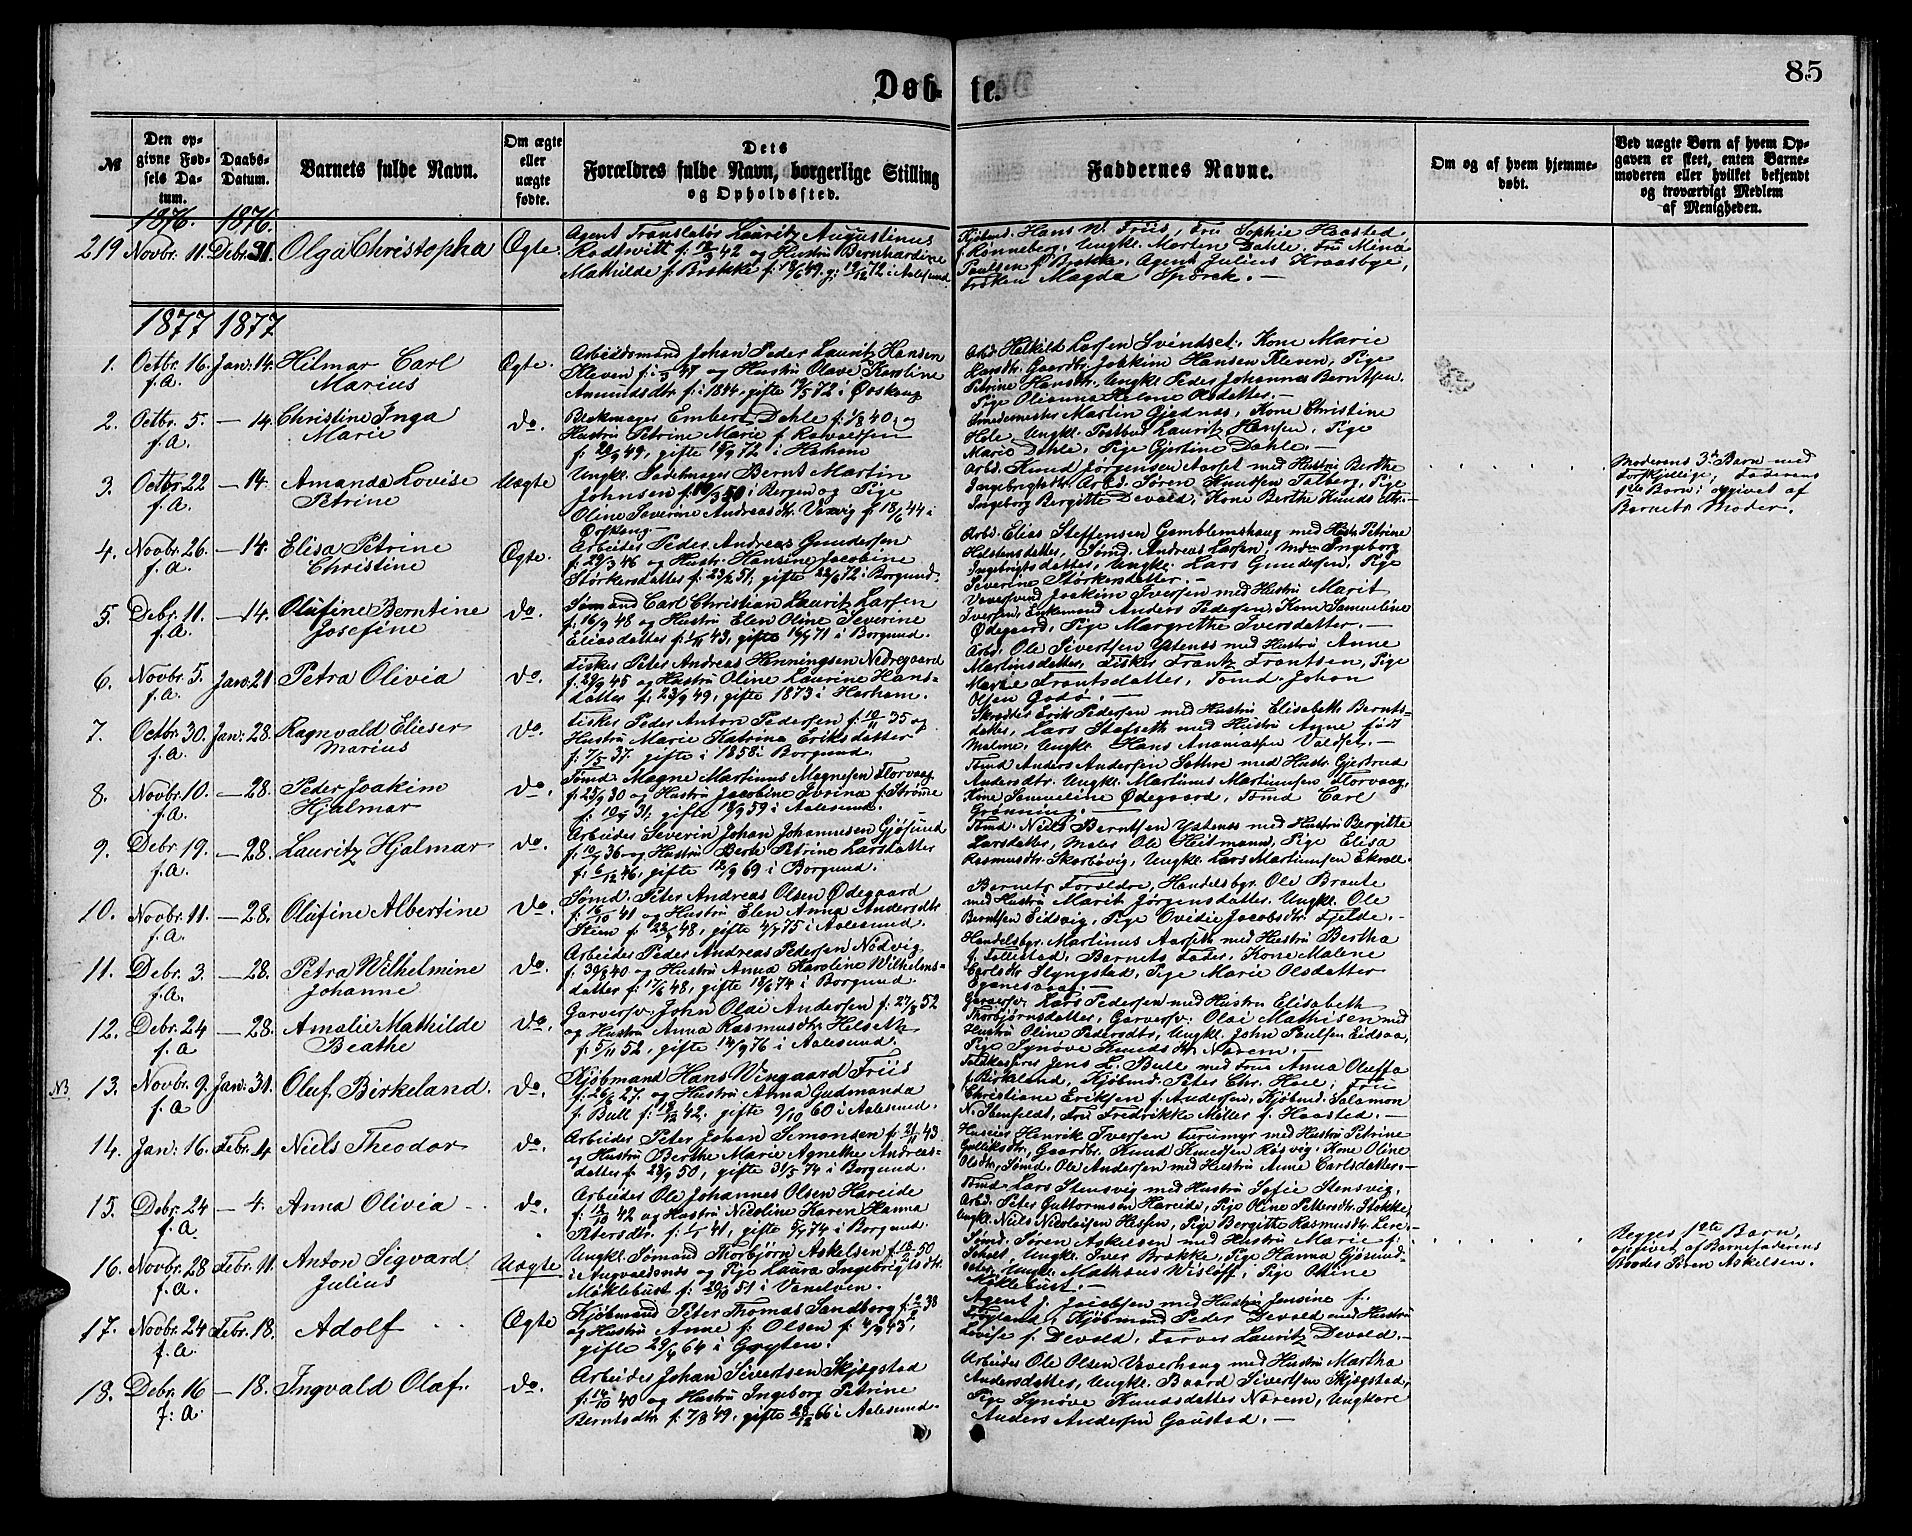 85
Døbte.
№
Den opgivne Fødsels Datum.
Daabs-Datum.
Barnets fulde Navn.
Om ægte eller uægte fødte.
Dets Forældres fulde Navn, borgerlige Stilling og Opholdssted.
Faddernes Navne.
Om og af hvem hjemmedøbt.
Ved uægte Børn af hvem Opgaven er skeet, enten Barnemoderen eller hvilket bekjendt og troværdigt Medlem af Menigheden.
1876. 1876.
219 Novbr. 11. Debr. 31. Olga Christopha Ægte.
Agent Translatør Lauritz Augustinus
Rødtsvitt f. 42 og Hustru Bernhardine
Mathilde f. Brokke f. 18/6 49, g. 19/12 72 i Aalesund
Kjøbmd. Hans W. Friis, Fru Sophie Haasted
f. Rønneberg, Ungkl. Morten Dahle, Fru Mina
Paulsen f. Brokke, Agent Julius Kraasbye,
Frøken Magda Spørck. —
1877 1877
1. Octbr. 16. f.A. Jan: 14. Hilmar Carl Marius Ægte.
Arbeidsmand Johan Peder Lauritz Hansen
Kleven f. 47 og Hustru Olave Karoline
Amundsdtr f. 1844, gifte 72 i Ørskoug
Arbd. Halkild Larsen Svindset, Kone Marie
Hansdtr. Gaardbr. Joakim Hansen Kleven, Pige
Petrine Hansdtr. Ungkl. Peder Johannes Berntsen.
Pige Olianna Helene Olsdatter. —
2. Octbr. 5. f.A. — 14. Christine Inga Marie do.
Dahle f. 1/8 40, og
Hustru Petrine Marie f.
f. 20/9 49, gifte 15/9 72 i Harham
Smedemester Martin Gjednæs, Kone Christine
Hole, Ungkl. Postbud Lauritz Hansen, Pige
Marie Dahle, Pige Gjertine Dahle. —
3. Octbr. 22 f.A. — 14. Amanda Lovise Petrine Uægte
Ungkl. Sadelmager Bernt Martin
Johnsen f. 50 i Bergen og Pige
Oline Severine Andreasdtr. f. 18/6 44 i
Ørskoug —
Arbd. Knud Jørgensen Aarset med Hustru Berthe
Ingebrigtsdtr. Arbd. Søren Knudsen Solberg, Pige
Ingeborg Bergitte Devold, Kone Berthe Knudsdtr. —
Moderens 3de Barn med
Forskjellige, Faderens
1ste Barn; opgivet af
Barnets Moder.
4. Novbr. 26. f.A. — 14. Elisa Petrine Christine Ægte.
Arbeider Peder Andreas Gundersen
f. 29/3 46 og Hustr. Hansine Jacobine
Størkersdatter f. 51, gifte 72 i Borgund.
Arbd. Elias Steffensen Gamblemshaug med Hustr. Petrine
Holstensdatter, Tømd. Andreas Larsen, Mdm Ingeborg
Ingebrigtsdatter, Ungkl. Lars Gundersen, Pige
Severine Størkersdatter. —
5. Debr. 11. f.A. — 14. Olufine Berntine Josefine do.
Sømand Carl Christian Lauritz Larsen
f. 16/9 48 og Hustru Elen Oline Severine
Eliasdatter f. 43, gifte 71 i Borgund.
Joakim Iversen med Hustru Marit
Iversen, Enkemand Anders Pedersen, Kone Samueline
Ødegaard, Pige Margrethe Iversdatter. —
6. Novbr. 5. f.A. Jan: 21 Petra Olivia do.
Fisker Peter Andreas Henningsen Nedregaard
f. 29/9 45 og Hustru Oline Laurine Hansdatter
f. 23/9 49, gifte 1873 i Harham.
Arbd. Ole Sivertsen Ystenæs med Hustru Anne
Martinsdatter, Fisker Frantz Frantsen, Pige
Marie Frantsdatter, Tømd. Johan
Olsen Godø. —
7. Octbr. 30. f.A. Jan: 28. Ragnvald Elieser Marius do.
Fisker Peder Anton Pedersen f. 19/11 35 og
Hustru Marie Katrina Eriksdatter
f. 7/5 37, gifte i 1858 i Borgund.
Skrædder Erik Pedersen med Hustru Elisabeth Berntsdatter,
Lars Stafseth med Hustru Anne født
Malme, Ungkl. Hans Ananiassen Valdset. —
8. Novbr. 10. f.A. — 28. Peder Joakim Hjalmar do.
Tømd. Magne Martinus Magnesen Florvaag
f. 25/9 30 og Hustru Jacobine Ivrina f. Strømme
f. 31, gifte 18/9 59 i Aalesund.
Tømd Anders Andersen Sathre med Hustr. Gjertrud
Andersdtr. Ungkl. Martinus Martinussen Florvaag,
Kone Samueline Ødegaard, Tømd Carl
Grønning. —
9. Debr 19. f.A. — 28. Lauritz Hjalmar do.
Arbeider Severin Johan Johannesen Gjøsund
f. 36 og Hustru Berte Petrine Larsdatter
f. 6/12 46, gifte 12/9 69 i Borgund.
Tømd. Niels Berntsen Ystenes med Hustru Bergitte
Larsdatter, Maler Ole Heitmann, Pige Elisa
Rasmusdtr. Skorbøvig, Ungkl. Lars Martinussen Ekroll.
10. Novbr. 11. f.A. — 28. Olufine Albertine do.
Sømd. Peter Andreas Olsen Ødegaard
f. 16/10 41 og Hustru Elen Anna Andersdtr
Steen f. 48, gifte 75 i Aalesund.
Barnets Forældre, Handelsbgr. Ole Braute
med Hustru Marit Jørgensdatter. Ungkl. Ole
Berntsen Eidsvig, Pige Ovidie Jacobsdtr. Fjelde. —
11. Debr. 3. f.A. — 28. Petra Wilhelmine Johanne do.
Arbeider Peder Andreas Pedersen Nidvig
f. 40 og Hustru Anna Karoline Wilhelmsdatter
f. 17/6 48, gifte 18/6 74 i Borgund
Handelsbgr. Martinus Aarseth med Hustru Bertha
f. Follestad, Barnets Fader, Kone Malene
Carlsdtr Slyngstad, Pige Marie Olsdatter
12. Debr. 24 f.A — 28. Amalie Mathilde Beathe do.
Garversv. John Olai Andersen f. 27/8 52
og Hustru Anna Rasmusdtr. Helseth
f. 5/11 52, gifte 14/9 76 i Aalesund.
Garversv. Lars Pedersen med Hustru Elisabeth
Thorbjørnsdatter, Garversv. Olai Mathisen med
Hustru Oline Pedersdtr, Ungkl. John Paulsen Eidsaa,
Pige Synøve Knudsdtr. Norem. —
NB 13. Novbr. 9. f.A Jan: 31. Oluf Birkeland. do.
Kjøbmand Hans Wingaard Friis
f. 26/8 27. og Hustru Anna Gudmanda
f. Bull f. 42, gifte 9/10 60 i Aalesund.
Toldkasserer Jens L. Bull med Frue Anna Oluffa
f. Birkeland, Kjøbmd. Peter Chr. Hoel, Frue
Christiane Eriksen f. Andersen, Kjøbmd. Salamon
N. Ibenfeldt, Fru Fredrikke Møller f. Haasted. —
14. Jan: 16. Febr. 4 Niels Theodor do.
Arbeider Peter Johan Simonsen f. 21/11 43
og Hustru Berthe Marie Agnethe Andreasdatter
f. 23/9 50, gifte 31/5 74 i Borgund.
Husejer Henrik Iversen Furumyr med Hustru Petrine
Gulliksdtr, Gaardbr. Knud Knudsen Røsvig, Kone Oline
Olsdtr, Sømd. Ole Andersen med Hustru Anne Carlsdatter. —
15. Debr. 24 f.A — 4. Anna Olivia do.
Arbeider Ole Johannes Olsen Hareide
f. 42 og Hustru Nicoline Karen Hanna
Petersdtr. f. 41, gifte 74 i Borgund.
Tømd. Lars Stensvig med Hustru Sofie Stensvig,
Arbd. Peter Guttormsen Hareide, Pige Oline Pettersdtr. Støkke,
Ungkl. Niels Nicolaisen Hessen, Pige Bergitte Rasmusdtr. Lere. —
16. Novbr. 28 f.A. Febr. 11. Anton Sigvard Julius Uægte
Ungkl. Sømand Thorbjørn Askelsen f. 50
i Augvaldsnæs og Pige Laura Ingebrigtsdtr.
Møklebust f. 51 i Vanelven.
Sømd. Søren Askelsen med Hustru Marie f.
Scholt, Ungkl. Iver Brokke, Pige Hanna Gjøsundsæter,
Ungkl. Mathæus Wisløff, Pige Oline
Møklebust. —
Begges 1ste Barn,
opgivet af Barnefaderens
Broder Søren Askelsen.
17. Novbr. 24 f.A. Febr. 18. Adolf Ægte
Kjøbmand Peter Thomas Sandberg f. 38
og Hustru Anne f. Olsen f. 4/9 43,
gifte 64 i Gryten.
Agent J. Jacobsen med Hustru Jensine f.
Frøyland, Kjøbmand Peder Devold med Hustru
Lovise f. Devold, Farver Lauritz Devold. —
18. Debr. 16 f.A. — 18. Ingvald Olaf. do.
Arbeider Johan Sivertsen Skjøgstad
f. 14/10 40 og Hustru Ingeborg Petrine
Berntsdtr f. 7/3 49, gifte 66 i Aalesund.
Arbeider Ole Olsen Vaverhaug med Hustru Martha
Andersdatter, Ungkl. Baard Sivertsen Skjøgstad,
Pige Synøve Knudsdatter Norem, Ungkare
Anders Andersen Gaustad. —